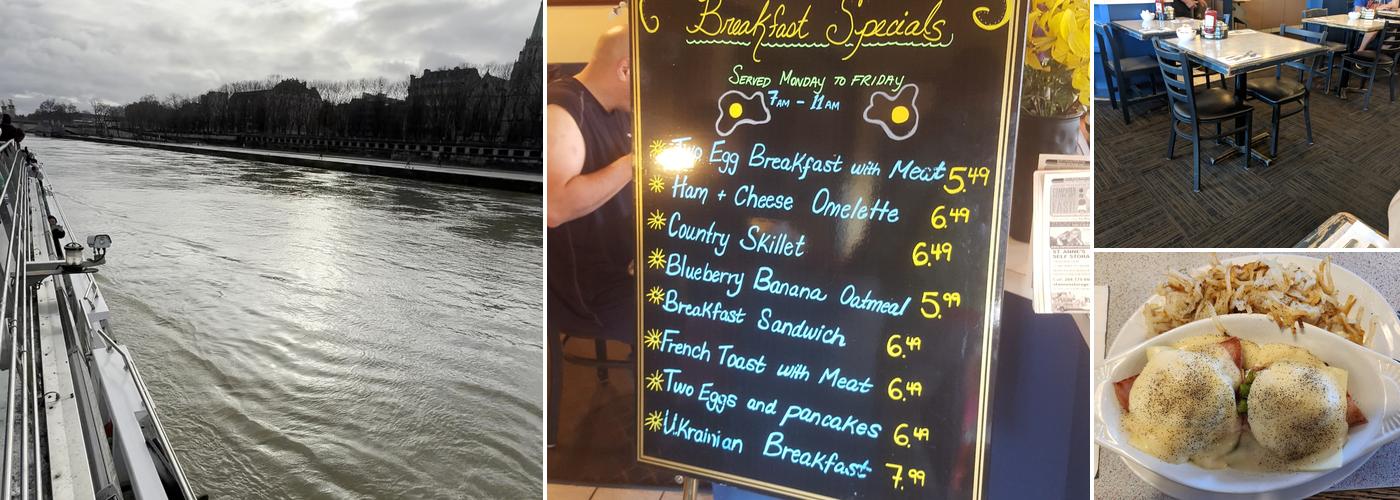 Breakfast Specials
SERVED MONDAY TO FRIDAY
7AM - 11AM
Two Egg Breakfast with Meat 5.49
Ham + Cheese Omelette 6.49
Country Skillet 6.49
Blueberry Banana Oatmeal 5.99
Breakfast Sandwich 6.49
French Toast with Meat 6.49
Two Eggs and pancakes 6.49
Ukrainian Breakfast 7.99
ST. ANNE'S
SELF STORA